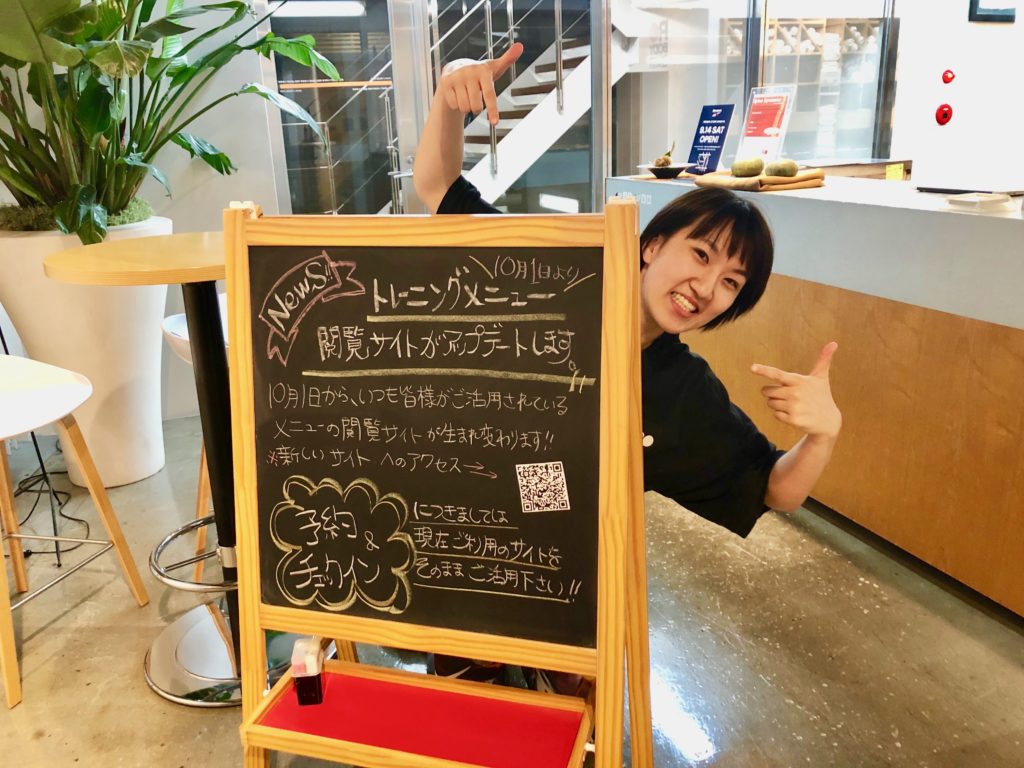 NEWS!
10月1日より
トレーニングメニュー
閲覧サイトがアップデートします。!!
10月1日から、いつも皆様がご活用されている
メニューの閲覧サイトが生まれ変わります!!
※新しいサイトへのアクセス→
予約
&
チェックイン
につきましては
現在ご利用のサイトを
そのままご活用下さい!!
9.14 SAT
OPEN!